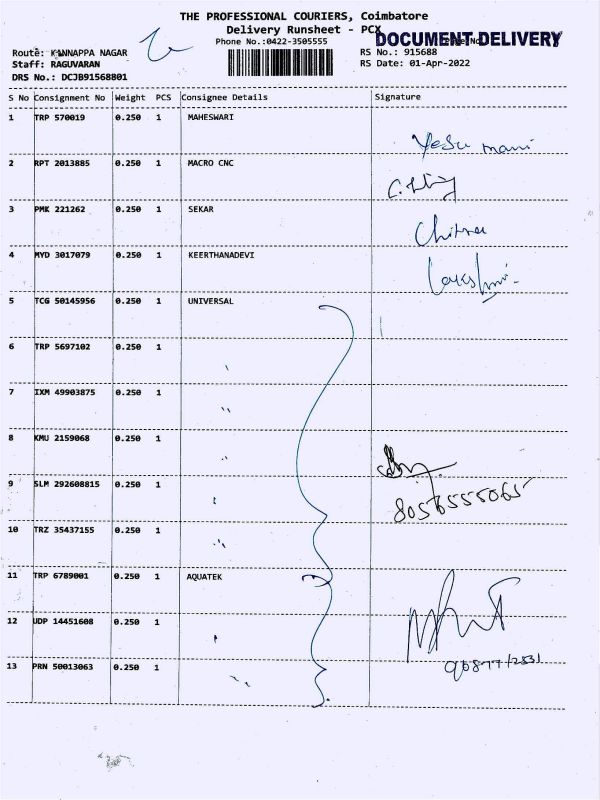 THE PROFESSIONAL COURIERS, Coimbatore
Delivery Runsheet - PCX
DOCUMENT DELIVERY
Phone No.:0422-3505555
Route: KANNAPPA NAGAR
RS No.: 915688
Staff: RAGUVARAN
RS Date: 01-Apr-2022
DRS No.: DCJB91568801
S No Consignment No Weight PCS Consignee Details Signature
1 TRP 570019 0.250 1 MAHESWARI
2 RPT 2013885 0.250 1 MACRO CNC
3 PMK 221262 0.250 1 SEKAR
Chitra
4 MYD 3017079 0.250 1 KEERTHANADEVI
Lakshmi
5 TCG 50145956 0.250 1 UNIVERSAL
6 TRP 5697102 0.250 1
7 IXM 49903875 0.250 1
8 KMU 2159068 0.250 1
9 SLM 292608815 0.250 1
8056555065
10 TRZ 35437155 0.250 1
11 TRP 6789001 0.250 1 AQUATEK
12 UDP 14451608 0.250 1
13 PRN 50013063 0.250 1